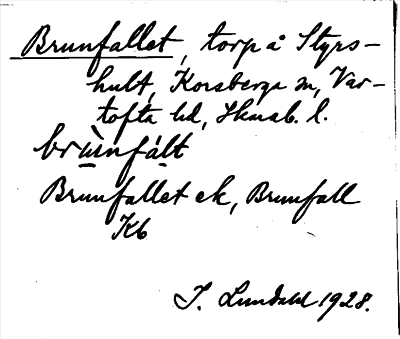 Brunfallet, torp å Styrs-
hult, Korsberga sn, Var-
tofta hd, Skarab. l.
brùnfált
Brunfallet ek, Brunfall
Kb
J. Lundahl 1928.